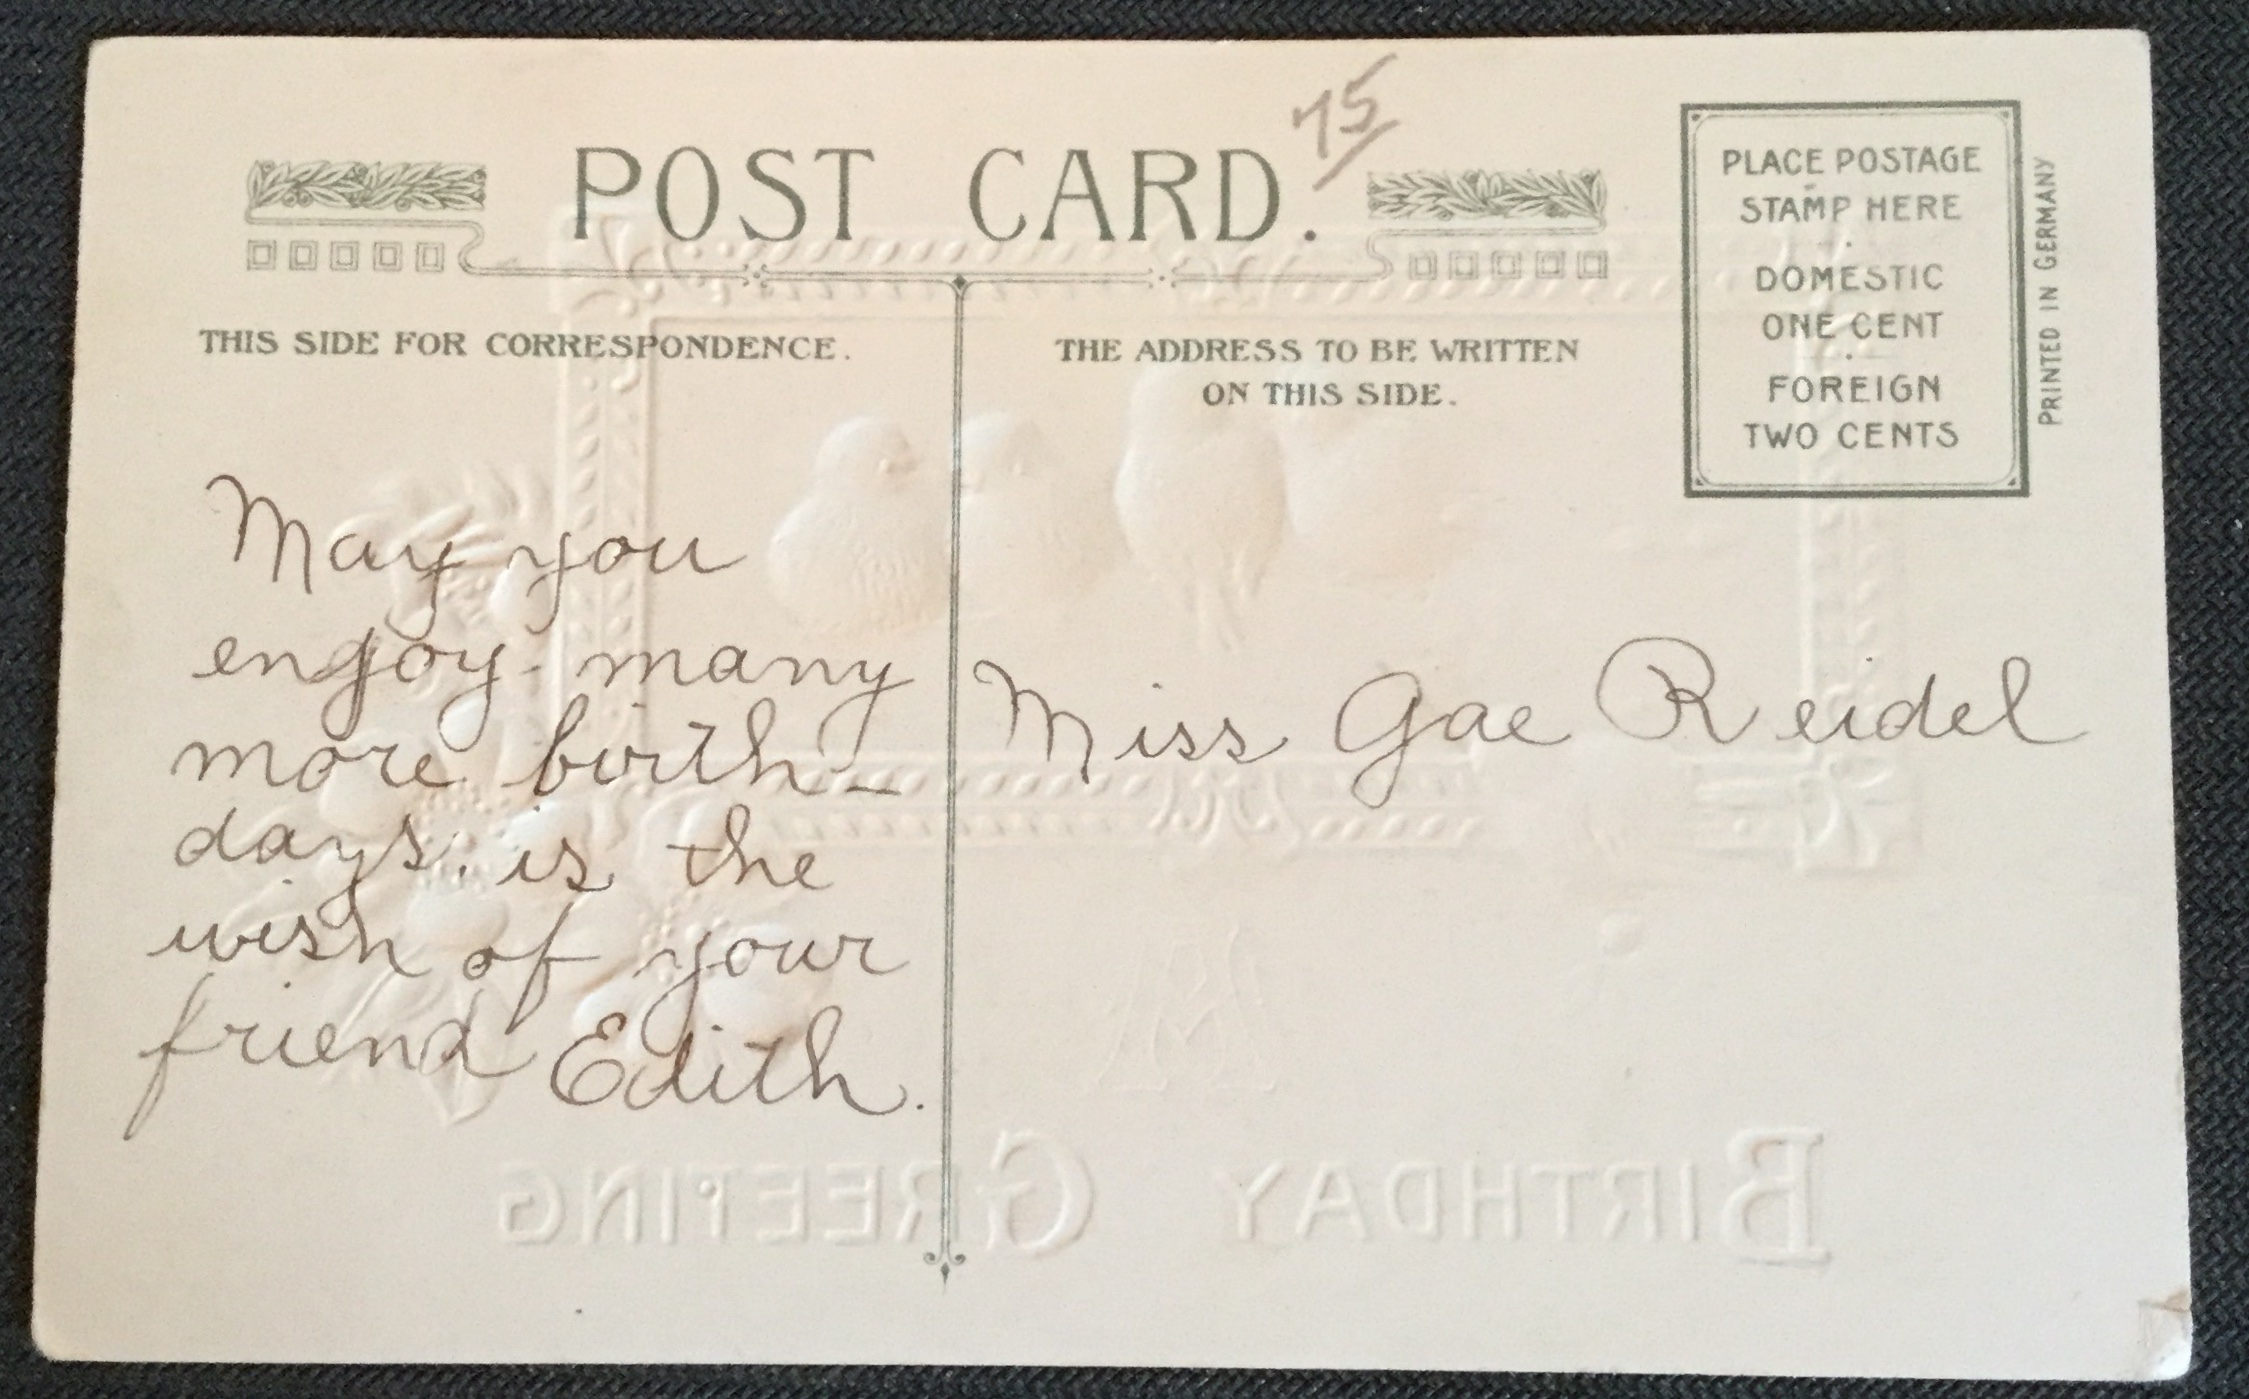 75
POST CARD.
THIS SIDE FOR CORRESPONDENCE.
THE ADDRESS TO BE WRITTEN
ON THIS SIDE.
PLACE POSTAGE
STAMP HERE
DOMESTIC
ONE CENT
FOREIGN
TWO CENTS
PRINTED IN GERMANY
May you
enjoy many
more birth-
days. is the
wish of your
friend Edith.
Miss Gae Reidel
A
BIRTHDAY GREETING